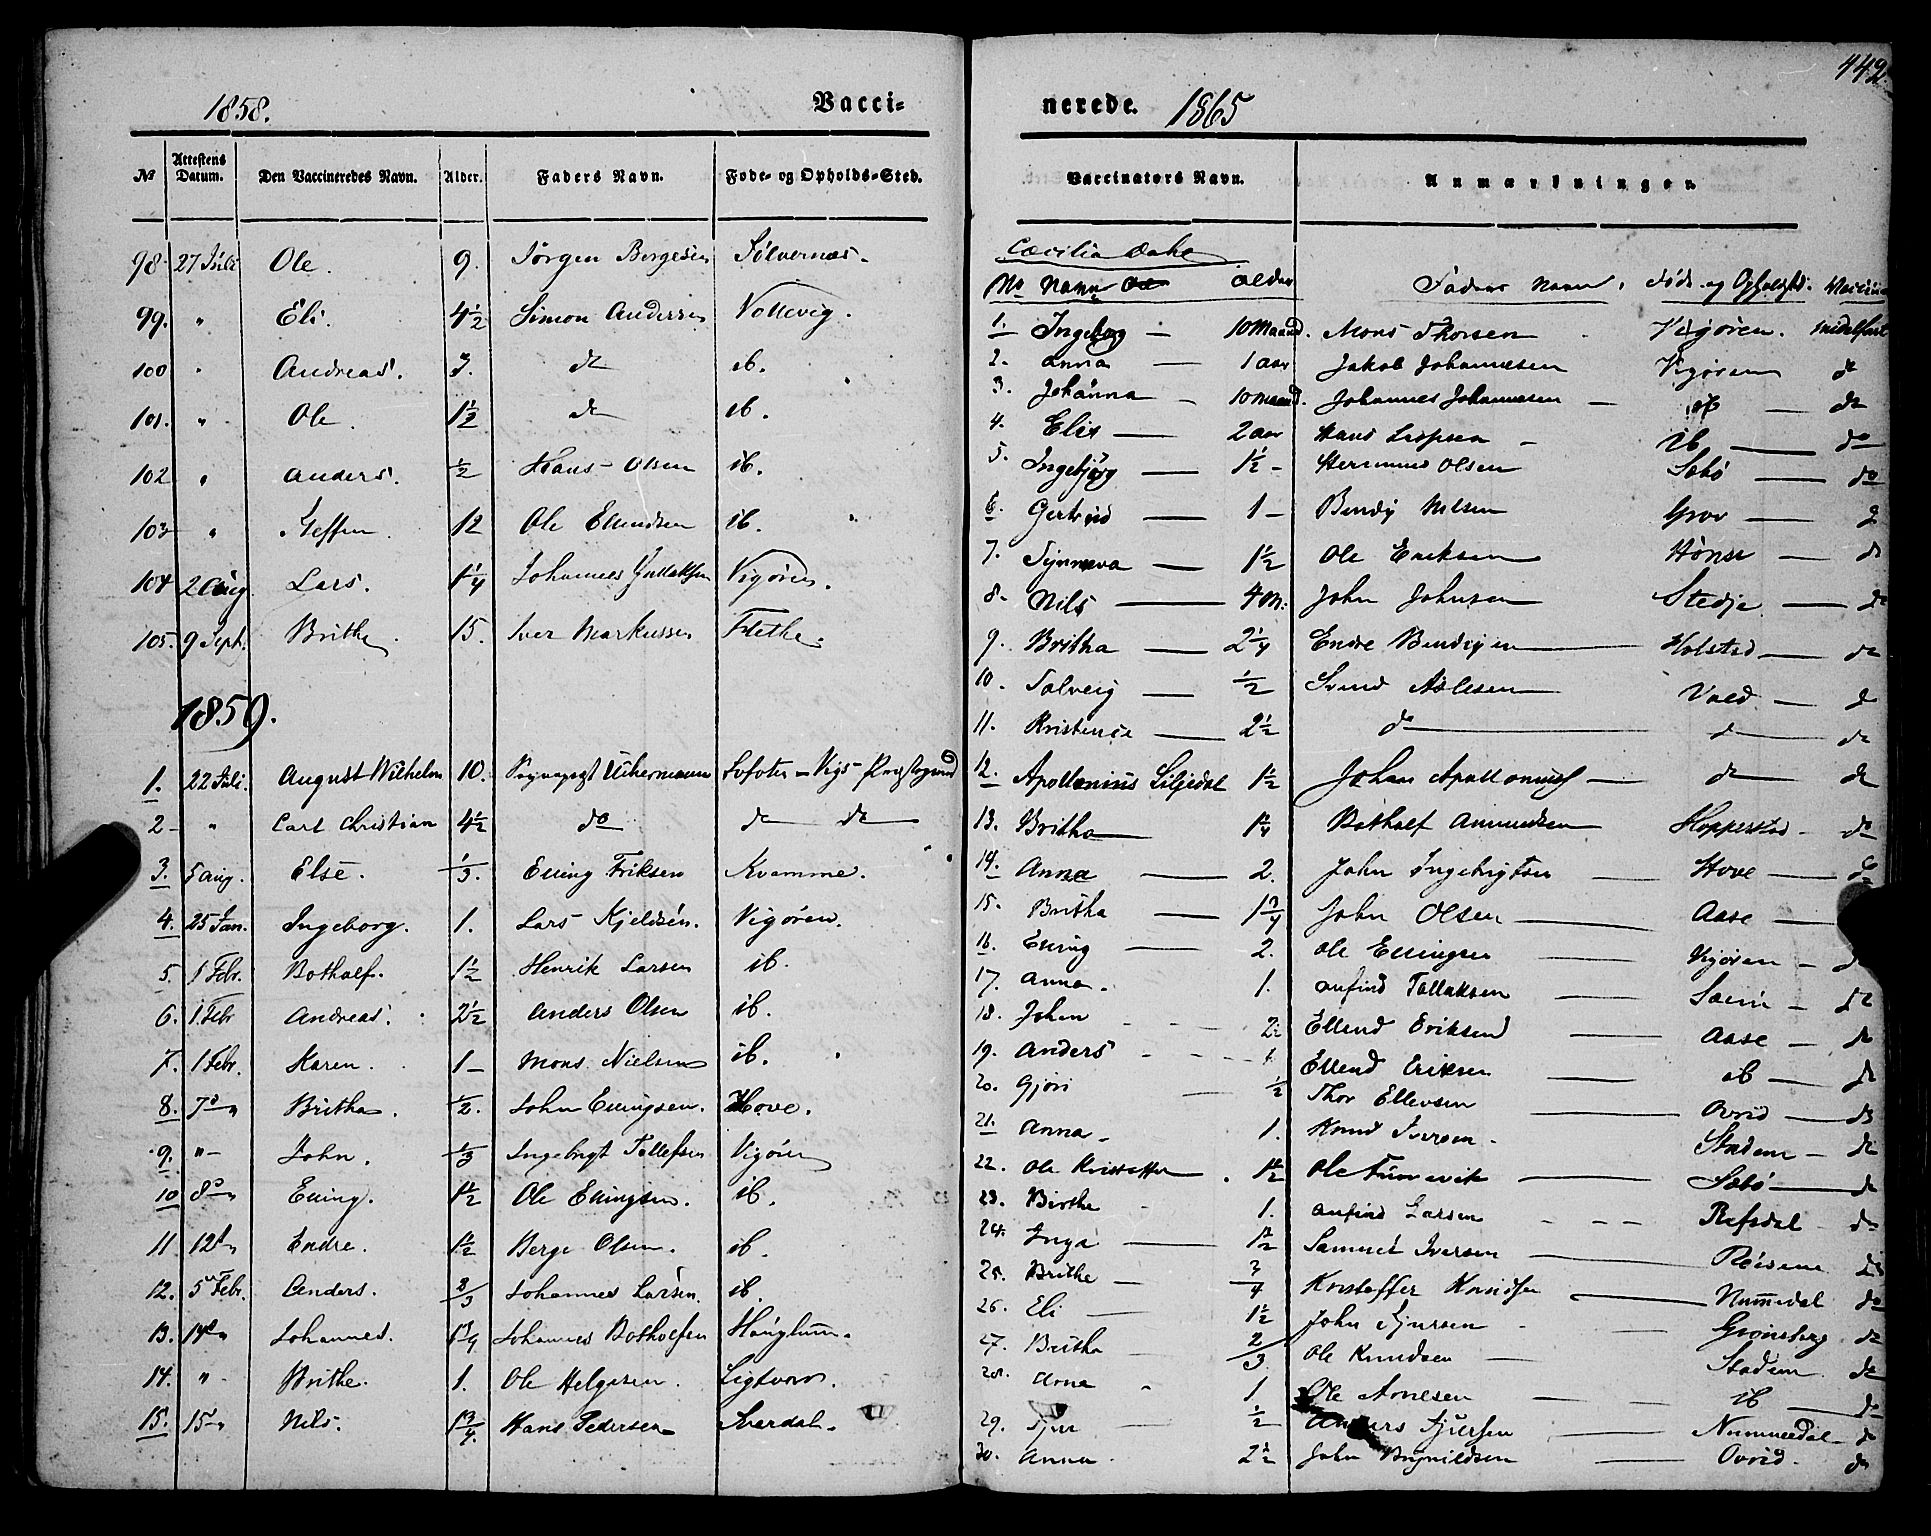 442
1858. Vacci-
№ Attestens Datum. Den Vaccineredes Navn. Alder. Faders Navn. Føde- og Opholds-Sted.
98 27 Juli Ole. 9. Jørgen Borgesen Sølvernæs.
99. " Eli. 4½ Simon Andersen Nottevig.
100 " Andreas. 3. do ib.
101. " Ole. 1½ do ib.
102 " Anders. ½ Hans Olsen ib.
103 " Steffen. 12 Ole Ellendsen ib.
104 2 Aug. Lars. 1¼ Johannes Vigøren.
105. 9 Sept. Brithe. 15. Iver Markussen Flethe.
1859.
1. 22 Juli. August Wilhelm 10. Uchermann Lofoten - Præstegjeld
2 - " Carl Christian 4½ do do do
3. 5 Aug. Else. ⅓. Elling Eriksen Kvamme.
4. 25 Jan. Ingeborg. 1. Lars Kjeldsen. Vigøren.
5. 1 Febr. Botholf. 1½ Henrik Larsen ib.
6. 1. Febr Andreas. 2½ Anders Olsen ib.
7. 1 Febr. Karen. 1 - Mons Nielsen ib.
8. 7d " Britha. ½. John Ellingsen. Hove.
9. " - John. ⅓ Ingebrigt Tollefsen Vigøren
10 8d " Elling. 1½ Ole Ellingsen. ib.
11 12t " Endre. 1½ Berge Olsen. ib.
12. 5 Febr. Anders. ⅔ Johannes Larsen. ib.
13. 14d " Johannes. 1¾ Johannes Botholfsen Hauglum.
14. " Brithe. 1. Ole Helgesen. Ligtvor.
15. 15 " Nils. 1¾. Hans Pedersen Sværdal.
nerede. 1865
Vaccinators Navn. Anmærkninger.
Cæcilia Dahe
No Navn Alder Faders Navn. Føde og Opholdsst. Vaccina
1. Ingeborg - 10 Maaned. Mons Thorsen Vigøren.
2. Anna 1 aar Jakob Johannesen Vigøren do
3. Johanna - 10 Maaned. Johannes Johannesen - ib - do
4. Elis - 2 aar Hans - ib - do
5. Ingebjørg - 1½ - Hermund Olsen Sæbø - do
6. Gertrud - 1 - Bendix Nilsen Grov - d
7. Synneva - 1½ Ole Eriksen Hønsi - do
8. Nils - 4 M. John Johnsen Stedje - do
9. Britha - 2¼ Endre Bendixen - Holstad - do
10. Solveig - ½ Svend Aslesen Vold - do
11. Kristense - 2½ do - do - do
12. Apollonius Liljedal 1½ Johan Apollonius - do - do
13. Britha - 1¾ Botholf Anmundsen Hopperstad - do
14. Anna - 2. John Ingebrigtsen - Hove - do
15. Britha - 1¾ John Olsen - Aase -
16 Elling - 2. Ole Ellingsen - Vigøren - d
17. Anna. 1. Anfind Tollaksen - Sæim - do
18. Johan 2½ Ellend Eriksen - Aase - do
19. Anders Ellend Eriksen - ib - do
20. Gjøri ½ Thor Ellevsen - Ovrid - do
21. Anna. 1. Knud Iversen - Stadem - do
22. Ole Kristoffer - 1½ Ole Tunsvik - Sæbø - do
23. Birthe 1. Anfind Larsen - Refsdal - do
24. Inga - 1½ Samuel Iversen - Röisene do
25. Brithe - ¾ Kristoffer Knudsen - Nummedal do
26. Eli - 1½ John Sjursen - Grønsberg do
27. Britha - ⅔ Ole Knudsen - Stadem do
28. Anna 1 Ole Arnesen - ib - do
29. Sjur ½ Anders Sjursen - Nummedal - do
30. Anna 2½ John Brynildsen - Ovrid. do